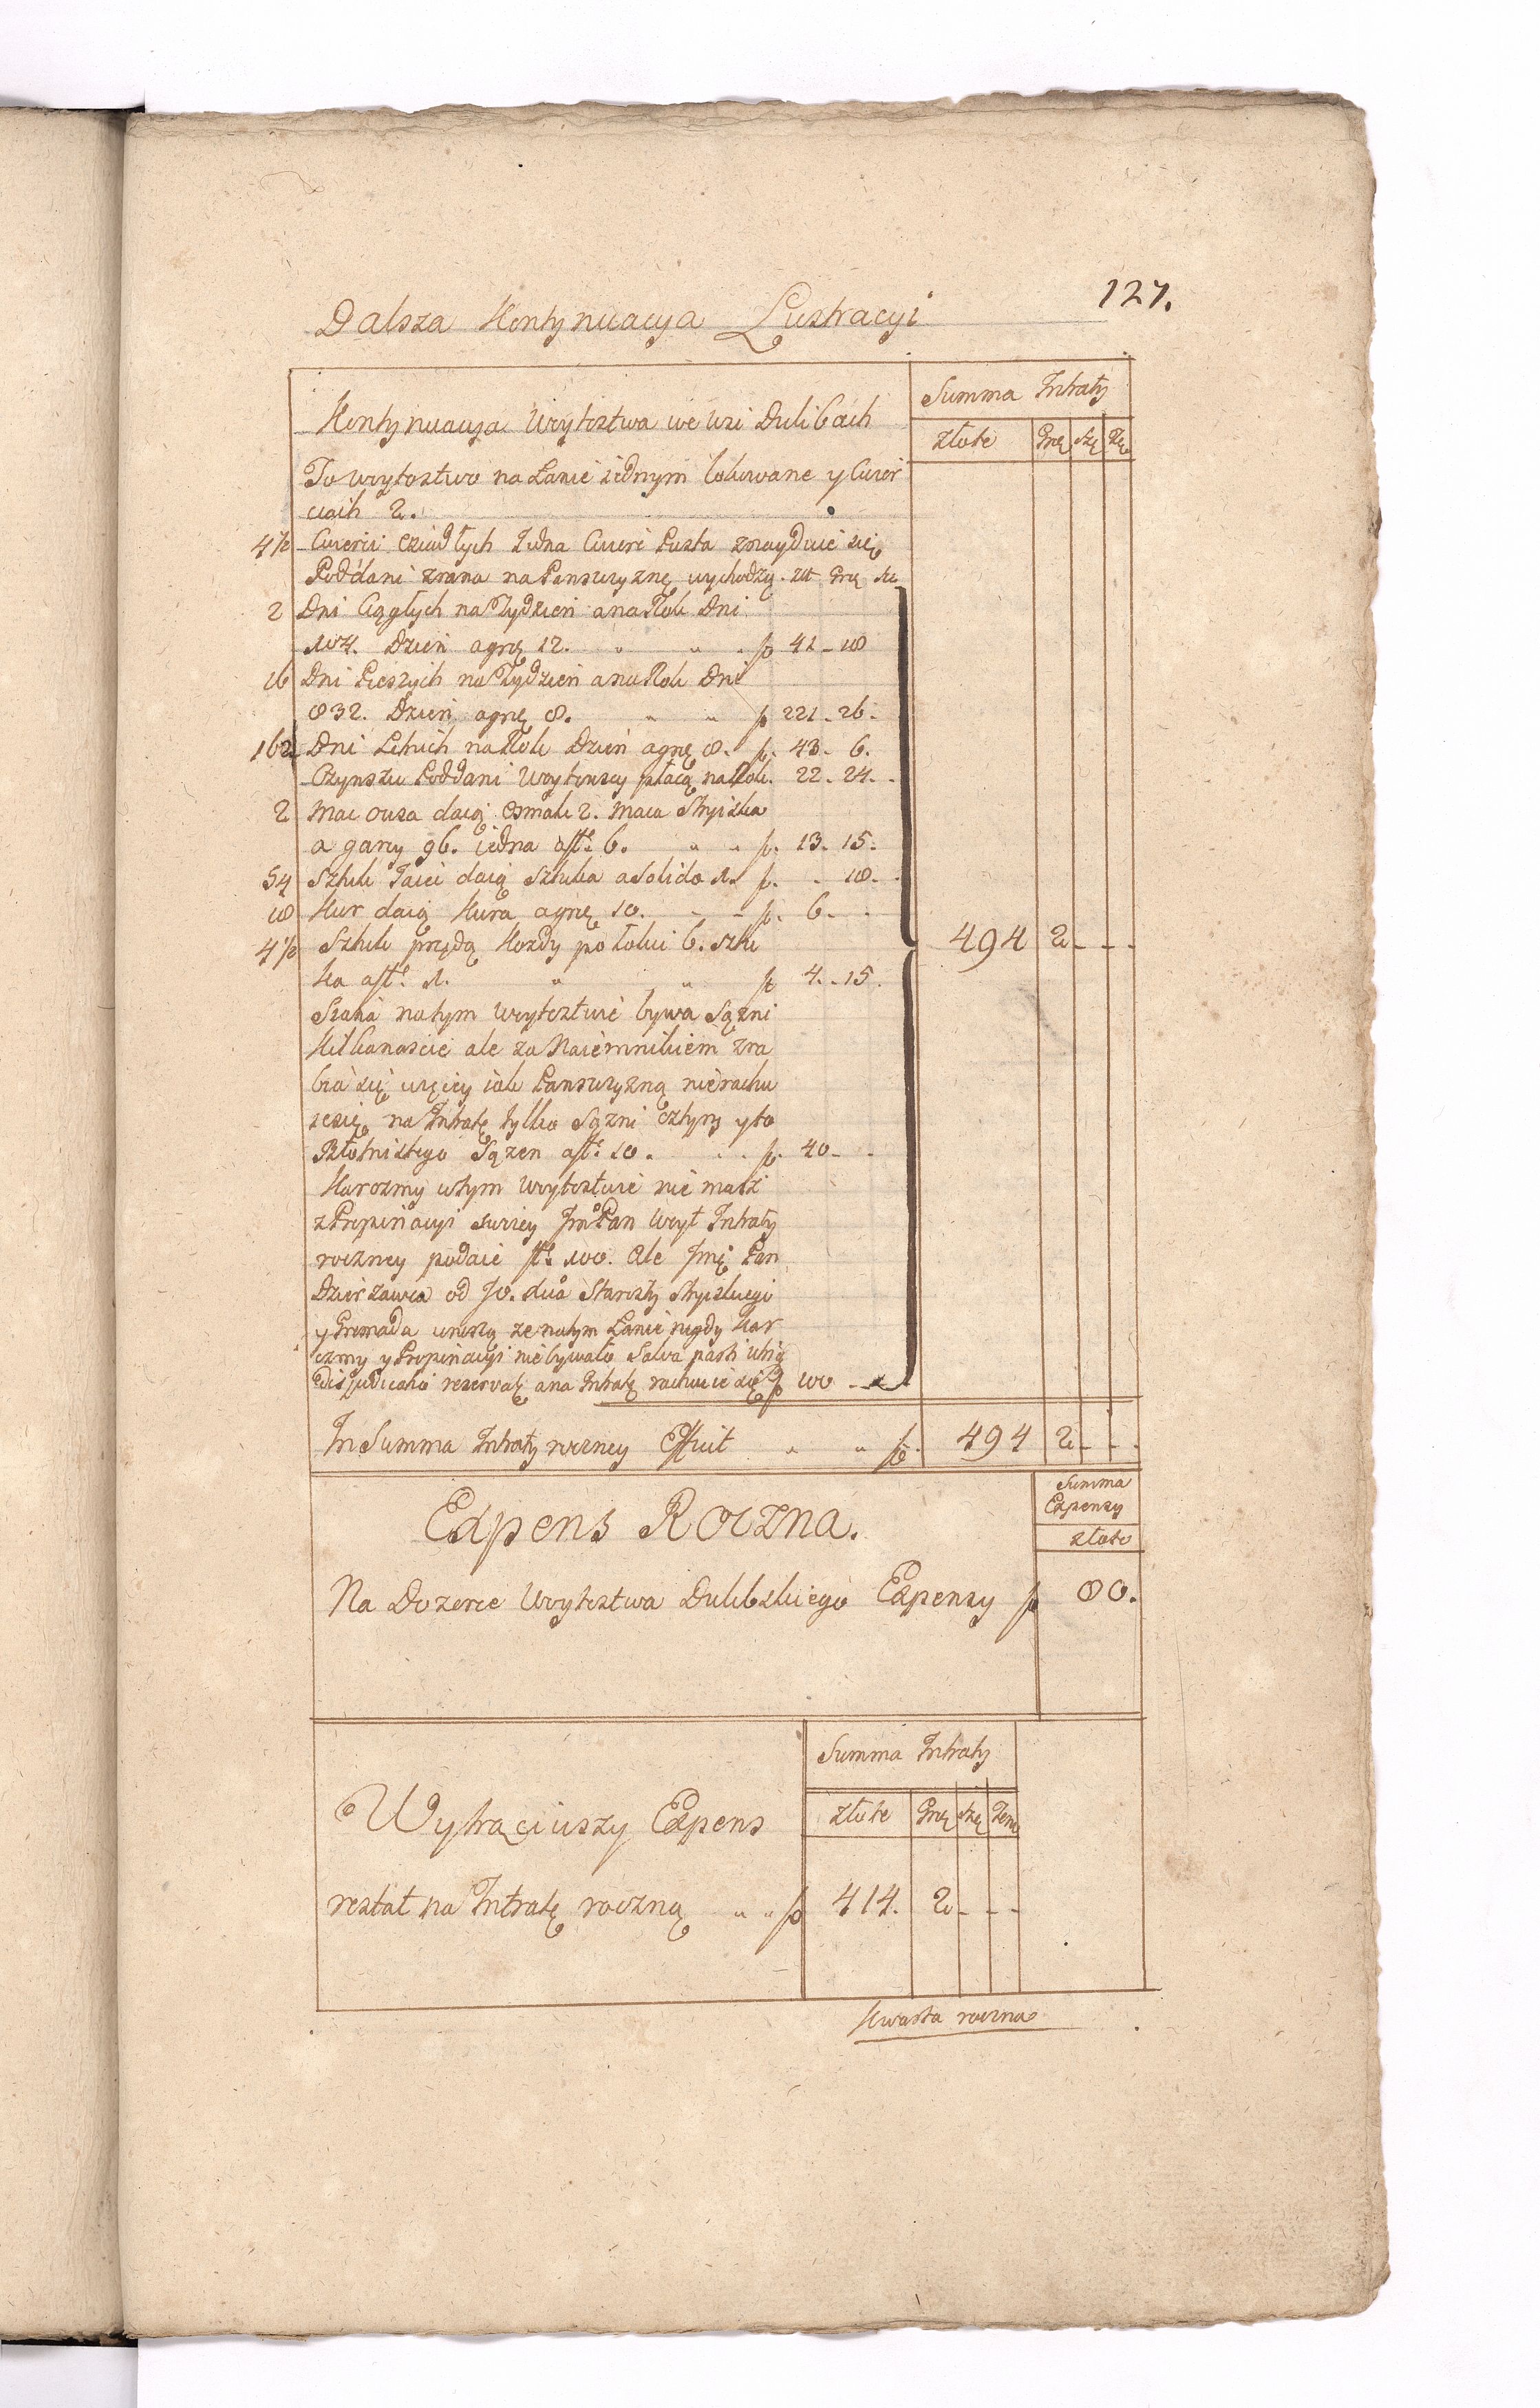 127.
Dalsza Kontynuacya Lustracyi
Summa Intraty
Kontynuacya Wrytostwa we Wsi Dulibach
złote Grę Szę
To wrytostwo na Łanie iednym lokowane y Cwier
ciach 2.
4½ Cwierci Osiadłych Jedna Cwierć Pusta znayduie się
Poddani zrana na Panszczyznę wychodzą. złt Grę Sze
2 Dni Ciągłych na Tydzień a na Rok Dni
104. Dzień a grę 12. " " " f 41 – 18
16 Dni Pieszych na Tydzień a na Rok Dni
832. Dzień a grę 8. " " f 221 – 26.
162 Dni Letnich na Rok Dzień a grę 8. f. 43. 6.
Czynszu Poddani Wrytowscy płacą na Rok. 22. 24.
2 Mac Owsa daią Osmak 2. Maca Stryiska
a garcy 96. iedna a fł. 6. " " f. 13. 15.
54 Sztuk Jaiec daią Sztuka a Solido 1. f. – 18.
18 Kur daią Kura a grę 10. – – f. 6.
4½ Sztuk przędą Kożdy po Łokci 6. Sztu
494 2 – – –
ka a fł. 1. " " f 4. – 15.
Siana na tym Wrytostwie bywa Sążni
Kilkanascie ale za Naiemnikiem zra
bia się więcey iak Panszczyzną nierachu
ie się na Intratę tylko Sążni cztyry y to
Błotnistego Sążen a fł. 10. . . f. 40 –
Karczmy w tym Wrytostwie nie masz
z Propinacyi swoiey Jmć Pan Wryt Intraty
roczney podaie fł. 100. Ale Jmć Pan
Dzierżawca od Starosty Stryiskiego
y Gromada wnoszą że na tym Łanie nigdy Kar
czmy y Propinacyi nie bywało Salva parti utriq
disjudicatio reservatę a na Intratę rachuie się f 100 –
In Summa Intraty roczney Efficit " " f. 494 2 – – –
Summa
Expensy
Expens Roczna.
złote
Na Dozorce Wrytostwa Dulibskiego Expensy f 80.
Summa Intraty
złote Grę Szę Den
Wytrąciwszy Expens
restat na Intratę roczną " " f 414. 2 – – –
Kwarta roczna